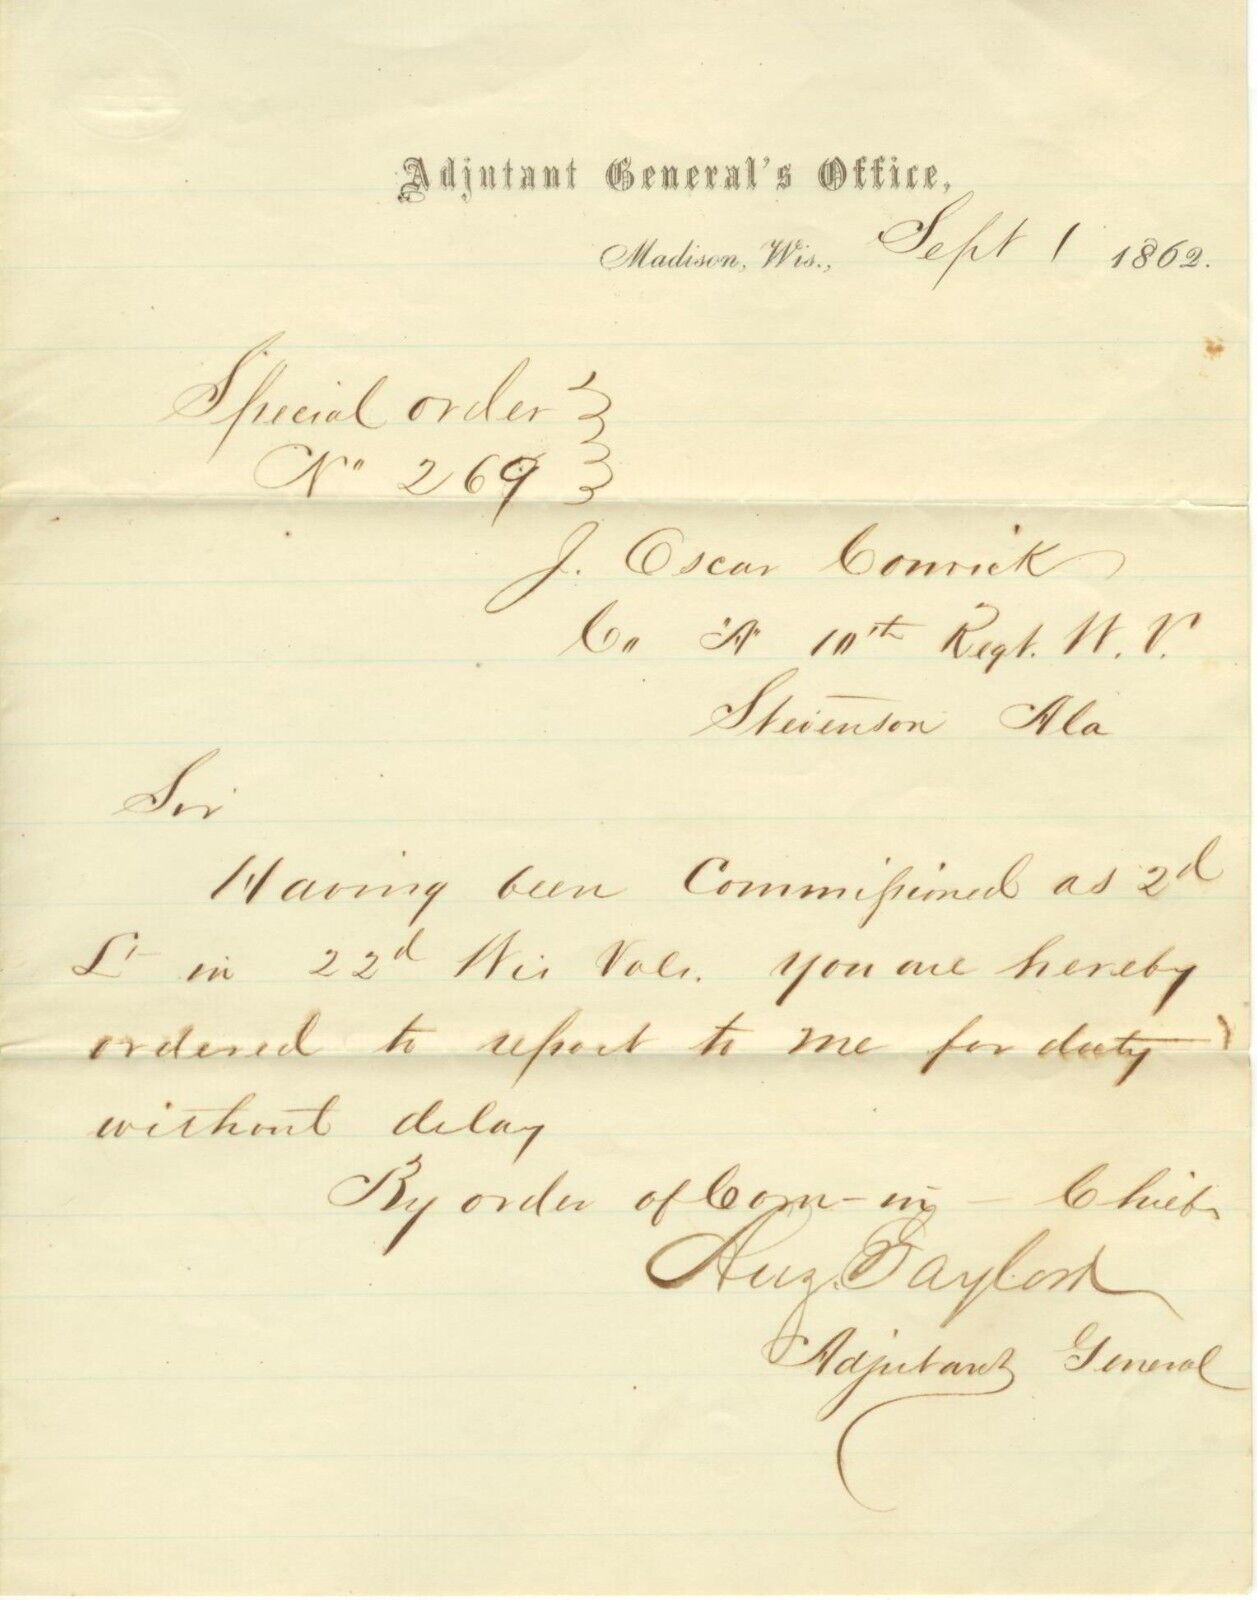 Adjutant General's Office,
Madison, Wis., Sept 1 1862.
Special order
No 269
J. Oscar Conrick
Co "A" 10th Regt. W. V.
Stevenson Ala
Sir
Having been Commissioned as 2d
Lt in 22d Wis Vols. you are hereby
ordered to report to me for duty
without delay
By order of Com-in-Chief
Aug. Gaylord
Adjutant General